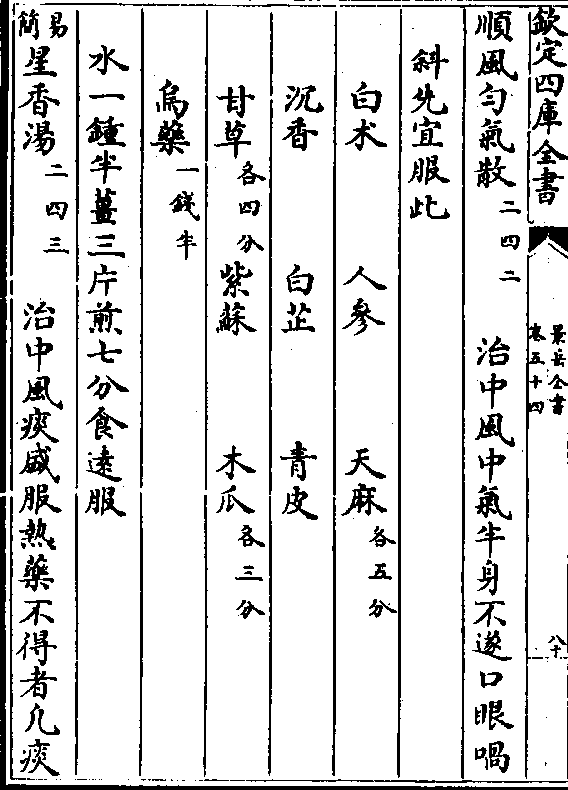 欽定四庫全書
景岳全書
卷五十四
八十
順風勻氣散二四二 治中風中氣半身不遂口眼喎
斜先宜服此
白术 人參 天麻各五分
沉香 白芷 青皮
甘草各四分 紫蘇 木瓜各三分
烏藥一錢半
水一鍾半薑三片煎七分食遠服
易簡星香湯二四三 治中風痰盛服熱藥不得者凡痰